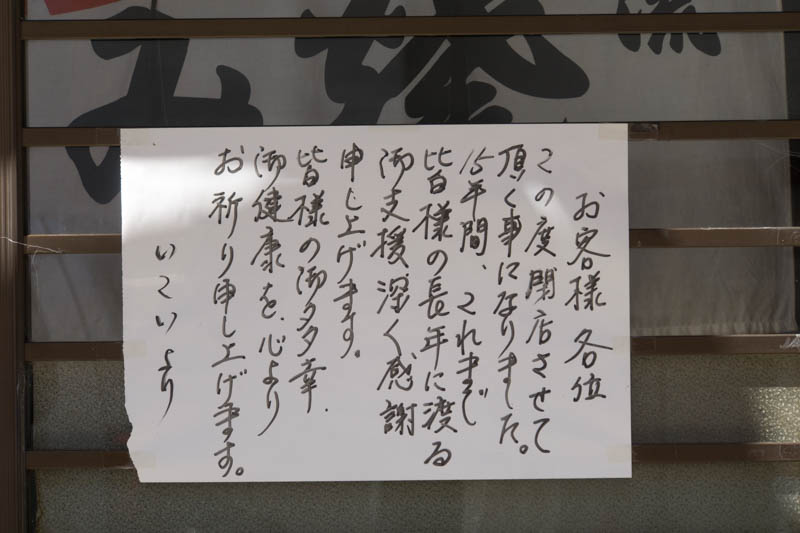 お客様 各位
この度閉店させて
頂く事になりました。
15年間、これまで
皆様の長年に渡る
御支援、深く感謝
申し上げます。
皆様の御多幸、
御健康を、心より
お祈り申し上げます。
いこいより